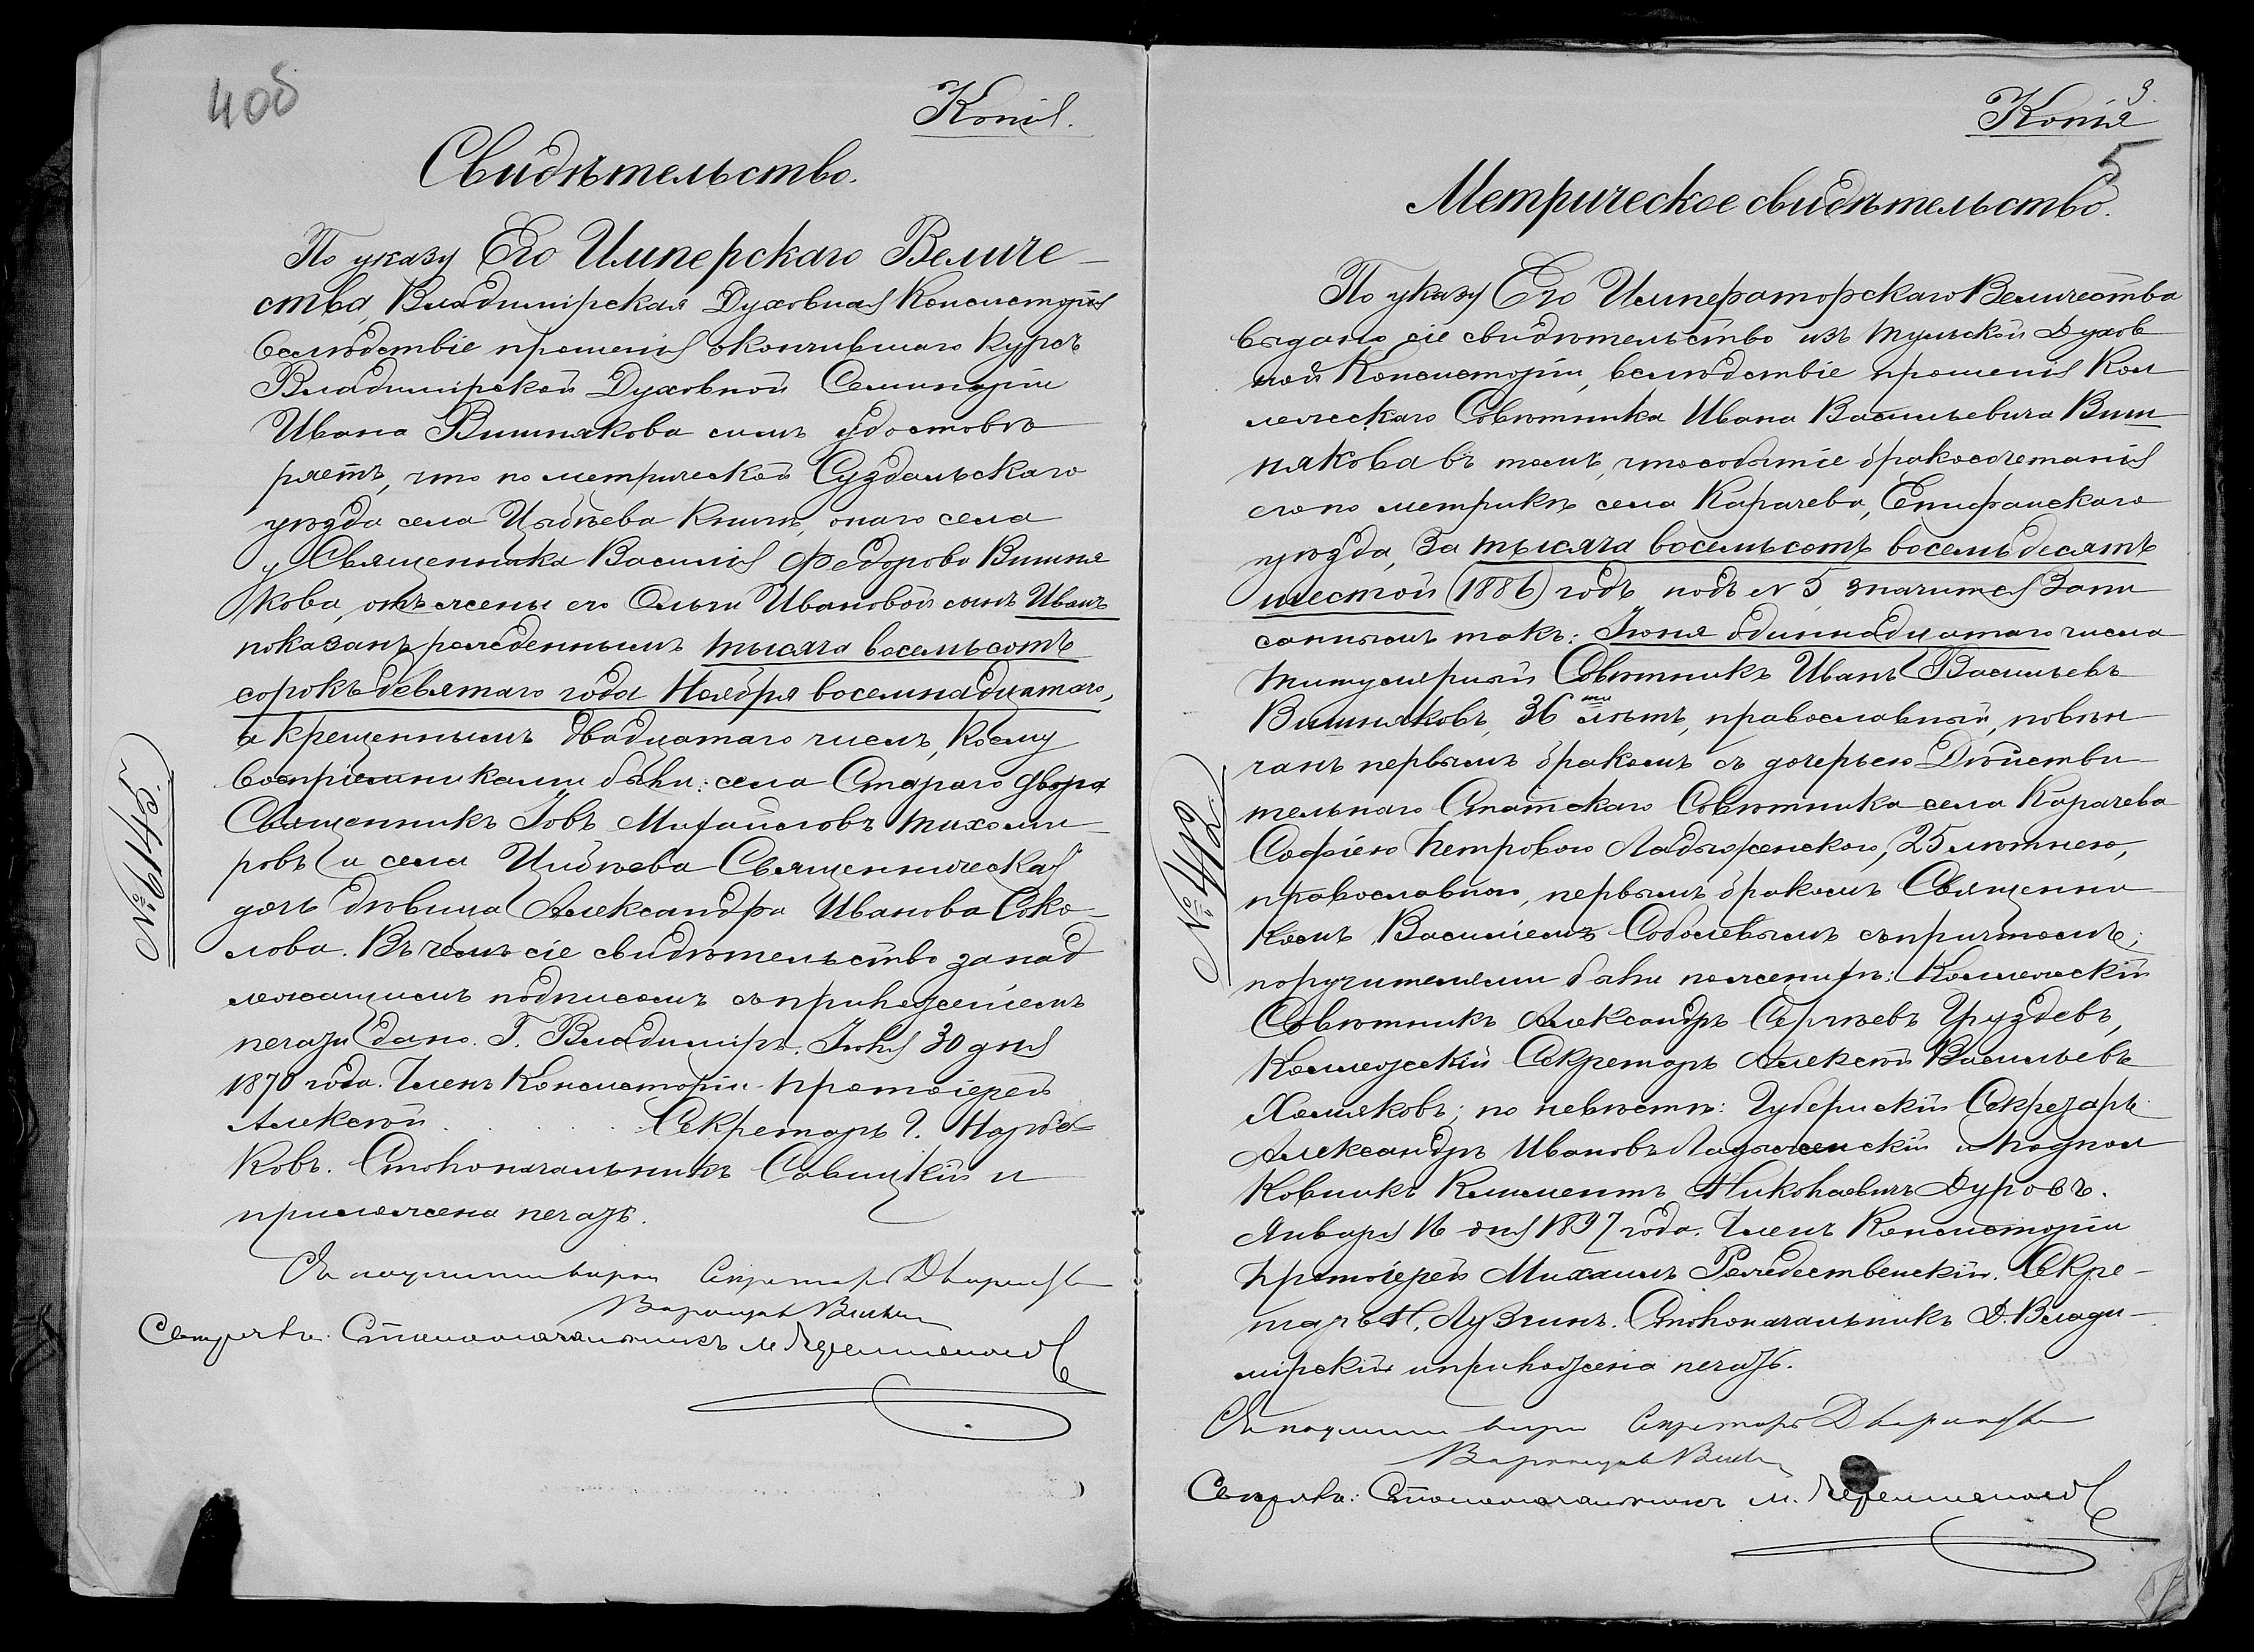 40б
Копія.
Свидѣтельство.
По указу Его Имперскаго Величе-
ства, Владимірская Духовная Консисторія
вслѣдствіе прошенія окончившаго курсъ
Владимірской Духовной Семинаріи
Ивана Вишнякова симъ удостовѣ
ряетъ, что по метрической Суздальскаго
уѣзда села Цибѣева книгѣ, онаго села
у Священника Василія Федорова Вишня
кова, отъ жены его Ольги Ивановой сынъ Иванъ
показанъ рожденнымъ тысяча восемьсотъ
сорокъ девятаго года Ноября восемнадцатаго,
а крещеннымъ двадцатаго числъ, коему
воспріемниками были: села Стараго двора
Священникъ Іовъ Михайловъ Тихоми-
ровъ и села Цибѣева Священническая
дочь дѣвица Александра Иванова Соко-
лова. Въ чемъ сіе свидѣтельство за над
лежащимъ подписомъ съ приложеніемъ
печати дано. Г. Владиміръ. Іюня 30 дня
1870 года. Членъ Консисторіи Протоіерей
Алексѣй . . . . . Секретарь Г.
ковъ. Столоначальникъ Савицкій и
приложена печать.
Съ подлиннымъ вѣрно Секретарь Дворянства
Столоначальникъ М.
№ 6149
3.
Копія
5
Метрическое свидѣтельство.
По указу Его Императорскаго Величества
выдано сіе свидѣтельство изъ Тульской Духов
ной Консисторіи, вслѣдствіе прошенія Кол
лежскаго Совѣтника Ивана Васильевича Виш
някова въ томъ, что событіе бракосочетанія
его по метрикѣ села Карачева, Епифанскаго
уѣзда, за тысяча восемьсотъ восемьдесятъ
шестой (1886) годъ подъ № 5 значится запи
саннымъ такъ: Іюня одиннадцатаго числа
Титулярный Совѣтникъ Иванъ Васильевъ
Вишняковъ, 36 ти лѣтъ, православный, повѣн
чанъ первымъ бракомъ съ дочерью Дѣйстви
тельнаго Статскаго Совѣтника села Карачева
Софіею Петровою Ладыженскою, 25 лѣтнею,
православною, первымъ бракомъ Священни
комъ Василіемъ Соболевымъ съ причтомъ;
поручителями были по женихѣ: Коллежскій
Совѣтникъ Александръ Сергѣевъ Груздевъ,
Коллежскій Секретарь Алексѣй Васильевъ
Хомяковъ; по невѣстѣ: Губернскій Секретарь
Александръ Ивановъ Ладыженскій и Подпол
ковникъ Климентъ Николаевичъ Дуровъ.
Января 16 дня 1897 года. Членъ Консисторіи
Протоіерей Михаилъ Рождественскій. Секре-
тарь Н. Лузгинъ. Столоначальникъ Д. Влади-
мірскій и приложена печать.
Съ подлиннымъ вѣрно Секретарь Дворянства
Столоначальникъ М.
№ 412